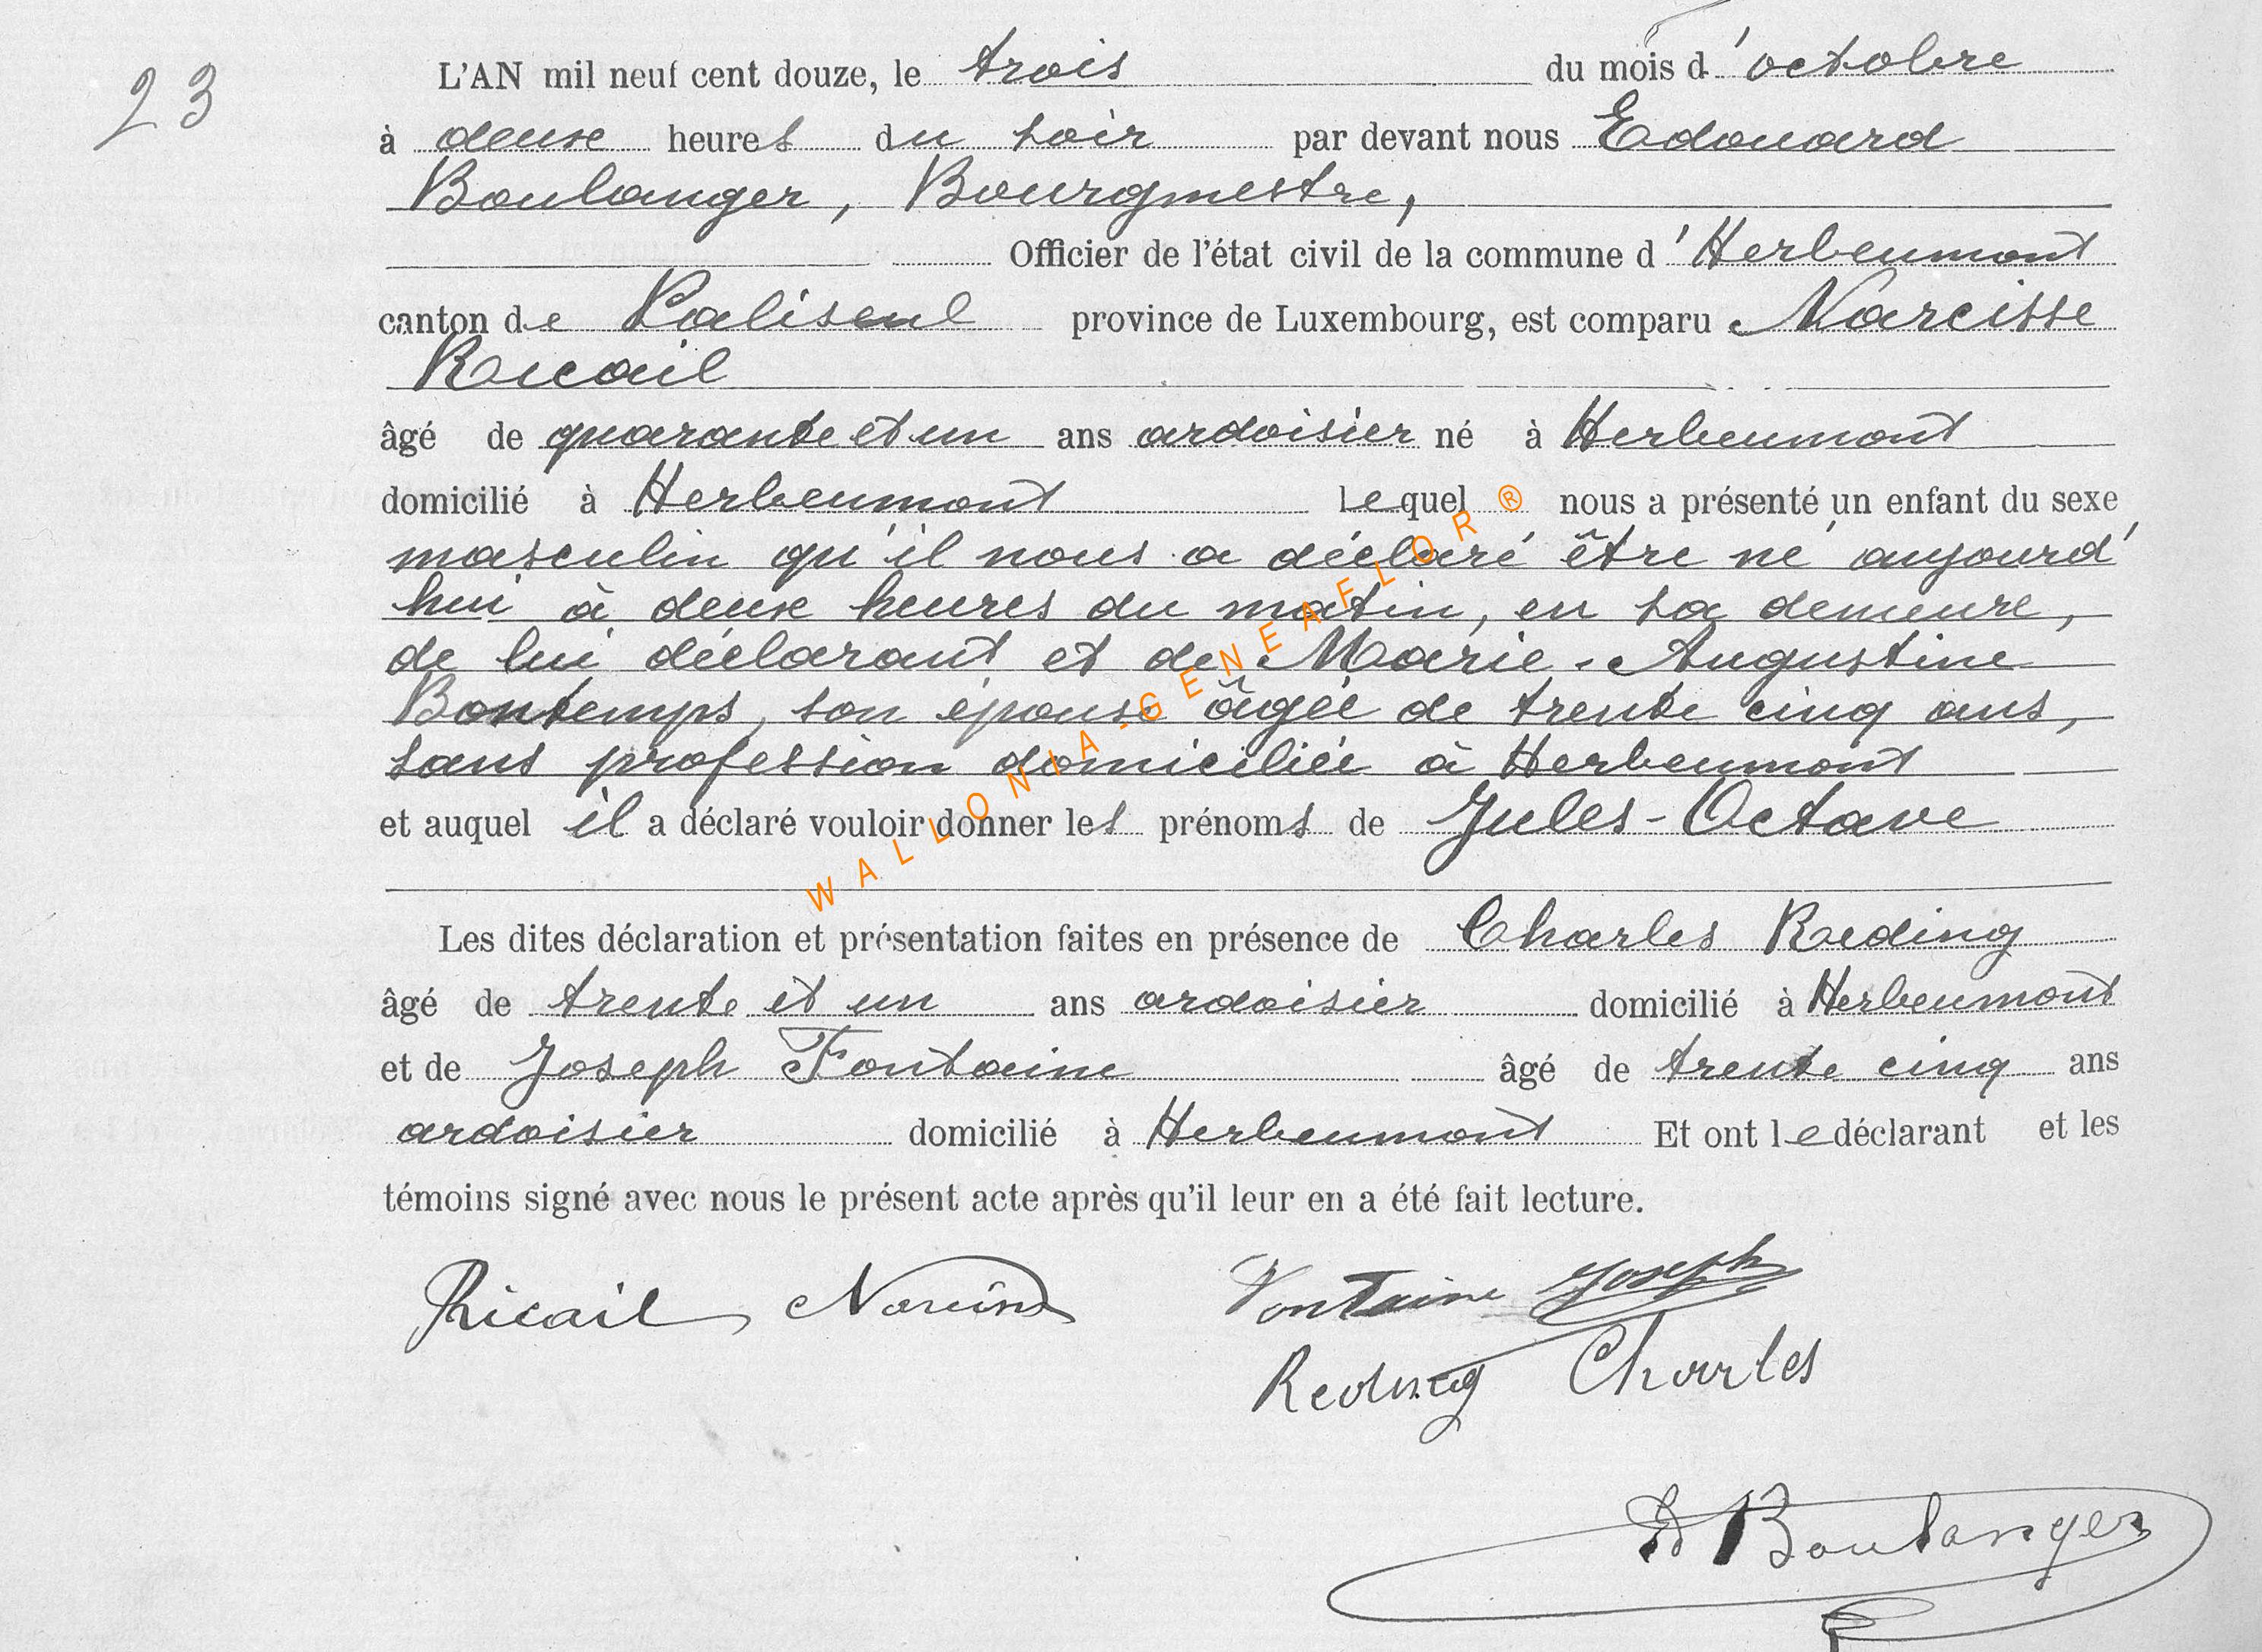 23
L'AN mil neuf cent douze, le trois du mois d'octobre
à deux heures du soir par devant nous Edouard
Boulanger, Bourgmestre,
Officier de l'état civil de la commune d'Herbeumont
canton de Paliseul province de Luxembourg, est comparu Narcisse
Ricail
âgé de quarante et un ans ardoisier né à Herbeumont
domicilié à Herbeumont Lequel nous a présenté un enfant du sexe
masculin qu'il nous a déclaré être né aujourd'
hui à deux heures du matin, en sa demeure,
de lui déclarant et de Marie-Augustine
Bontemps, son épouse âgée de trente cinq ans,
sans profession domiciliée à Herbeumont
et auquel il a déclaré vouloir donner les prénoms de Jules-Octave
Les dites déclaration et présentation faites en présence de Charles Reding
âgé de trente et un ans ardoisier domicilié à Herbeumont
et de Joseph Fontaine âgé de trente cinq ans
ardoisier domicilié à Herbeumont Et ont le déclarant et les
témoins signé avec nous le présent acte après qu'il leur en a été fait lecture.
Ricail Narcisse Fontaine Joseph
Reding Charles
Ed Boulanger
WALLONIA-GENEAFLOR®